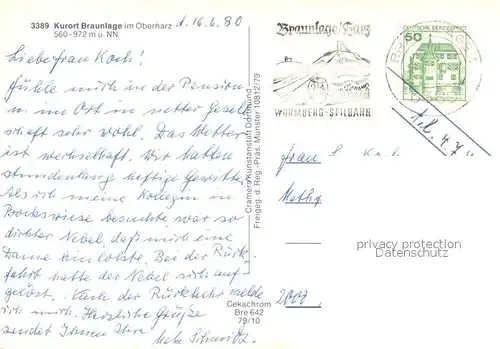 3389 Kurort Braunlage im Oberharz
560-972 m ü. NN
d. 16.6.80
Liebe Frau Koch!
Fühle mich in der Pension
u. im Ort in netter Gesell
schaft sehr wohl. Das Wetter
ist wechselhaft. Wir hatten
stundenlang heftige Gewitter.
Als ich meine Kollegin in
Bockswiese besuchte war so
dichter Nebel, daß mich eine
Dame heimlotste. Bei der Rück
fahrt hatte der Nebel sich auf-
gelöst. Nach der Rückkehr melde
ich mich. Herzliche Grüße
sendet Ihnen Ihre
Meta Schmitz
Cramers Kunstanstalt Dortmund
Freigeg. d. Reg.-Präs. Münster 10812/79
Cekachrom
Bre 642
79/10
Braunlage/Harz
WURMBERG-SEILBAHN
DEUTSCHE BUNDESPOST
50
Frau
privacy protection
Datenschutz